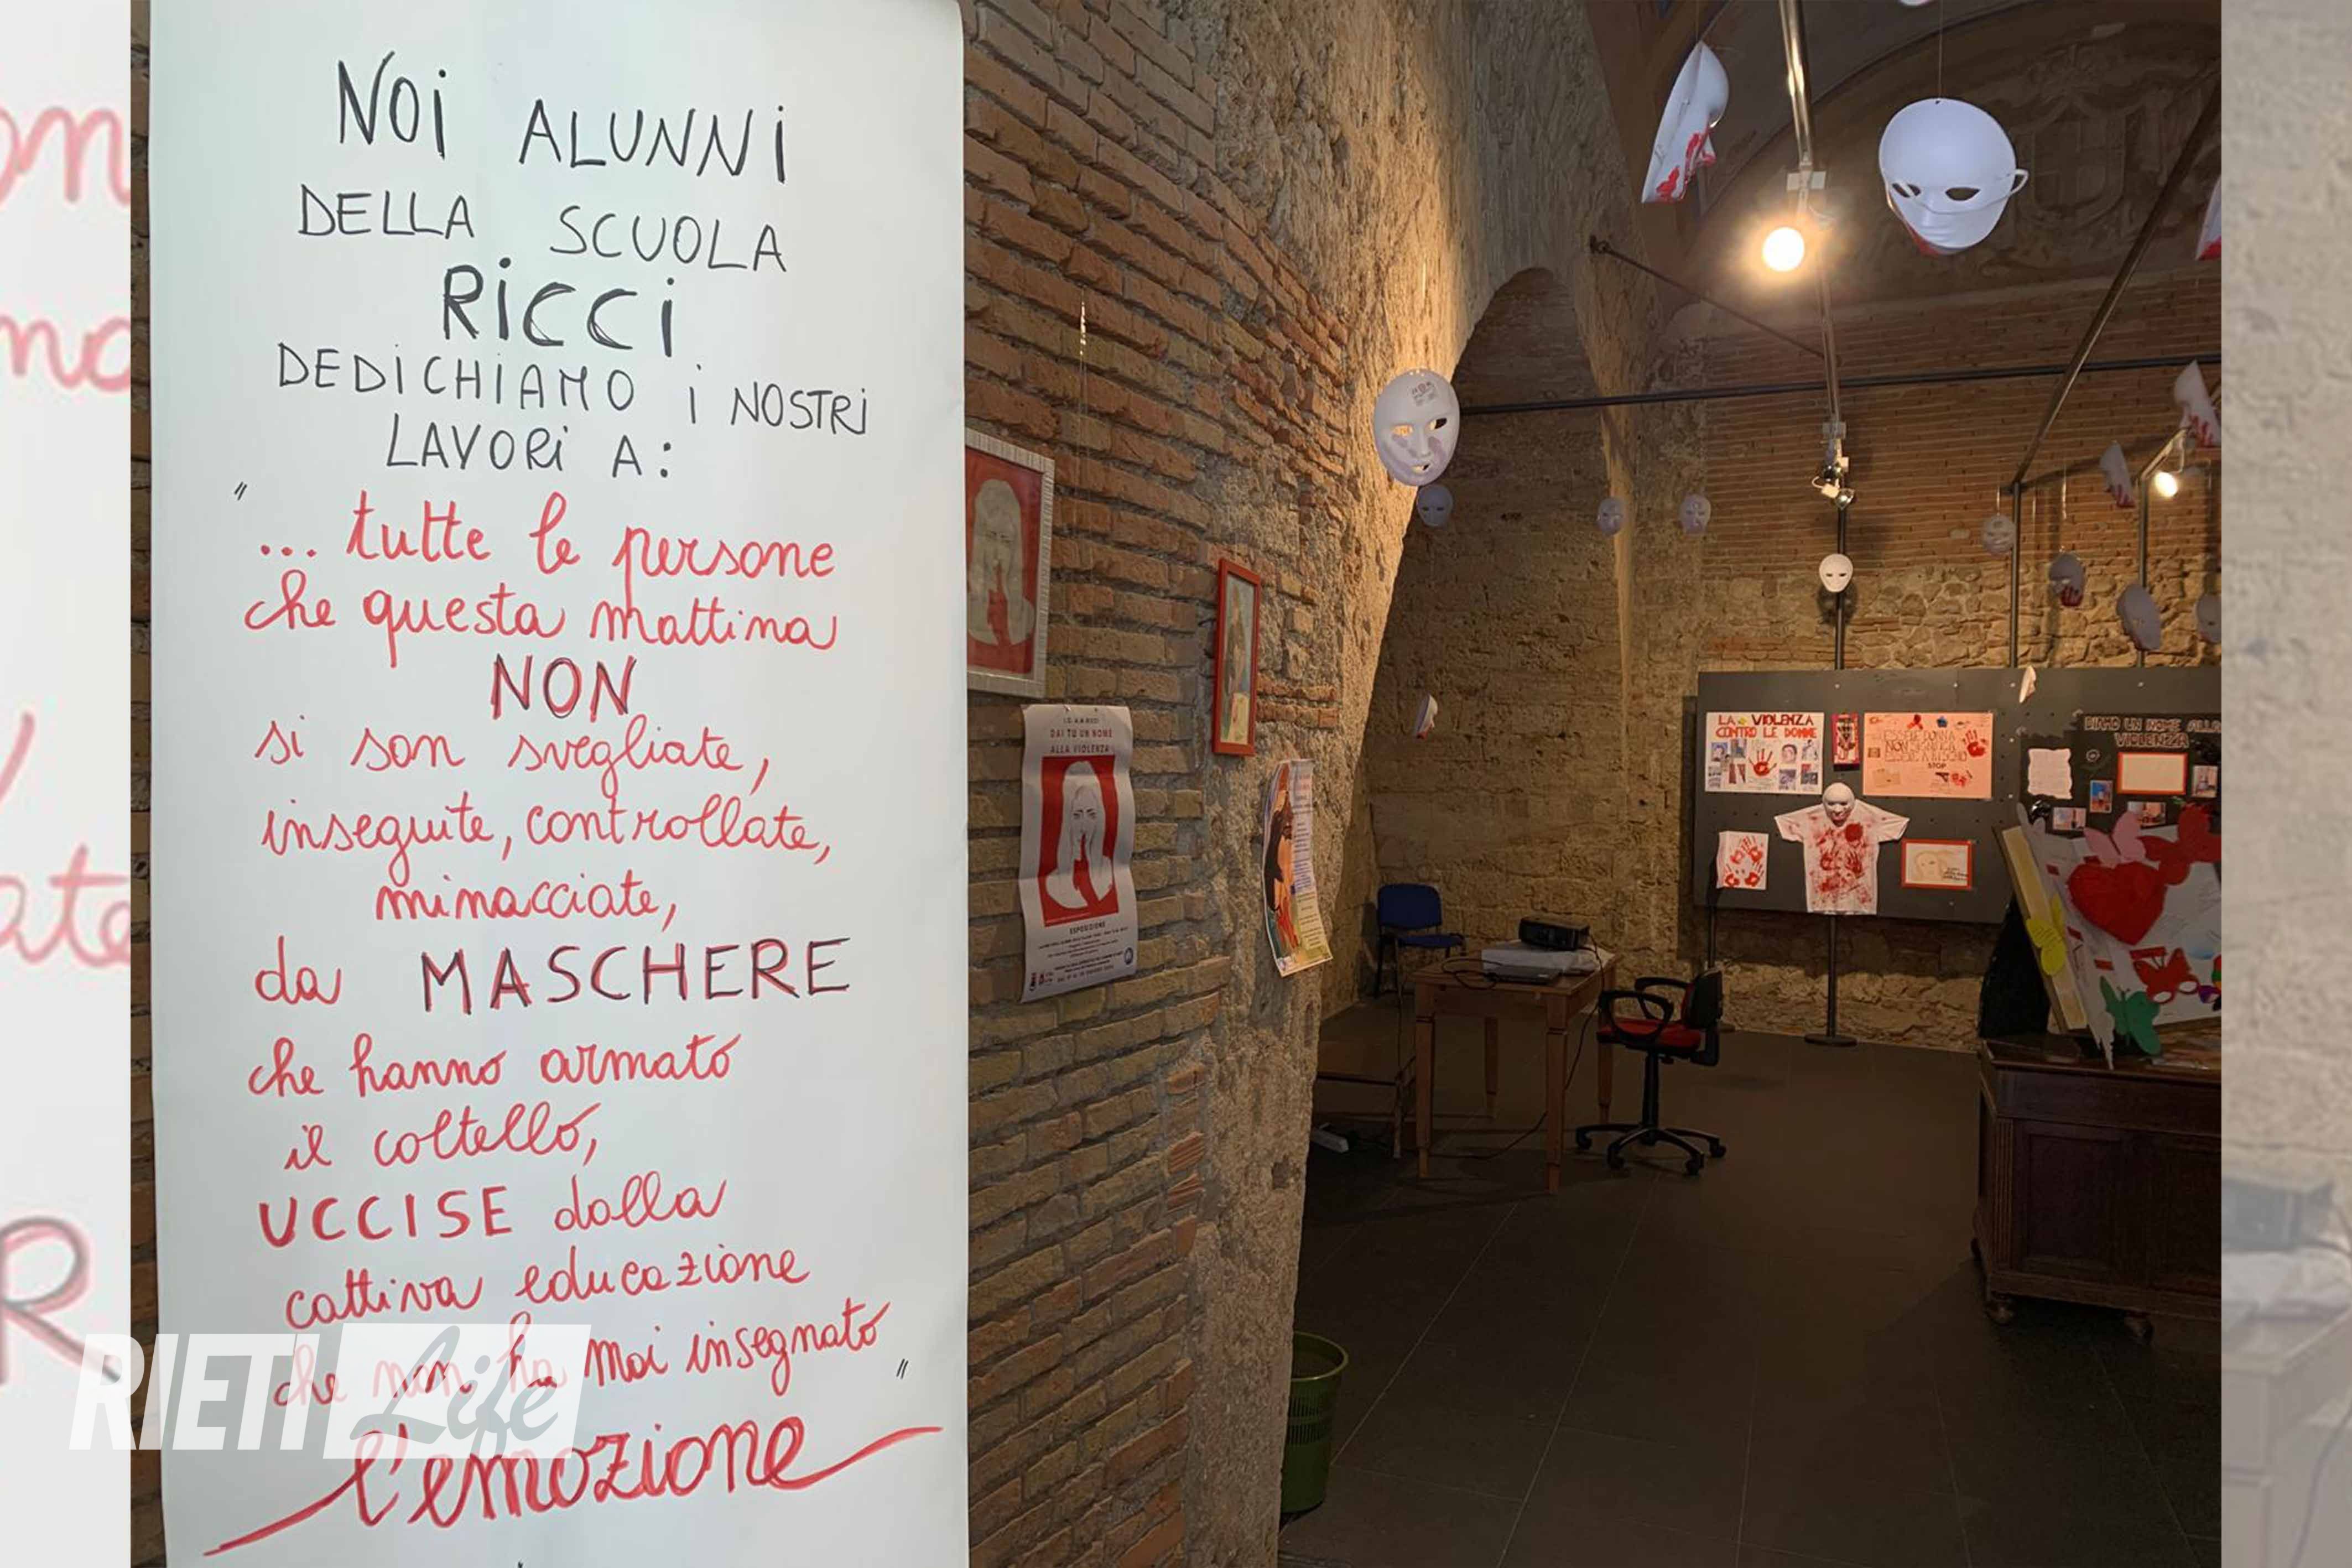 NOI ALUNNI
DELLA SCUOLA
RICCI
DEDICHIAMO I NOSTRI
LAVORI A:
"... tutte le persone
che questa mattina
NON
si son svegliate,
inseguite, controllate,
minacciate,
da MASCHERE
che hanno armato
il coltello,
UCCISE dalla
cattiva educazione
che non ha mai insegnato"
l'emozione
RIETI Life
DAI TU UN NOME
ALLA VIOLENZA
ESPOSIZIONE
LA VIOLENZA
CONTRO LE DONNE
NON
STOP
DIAMO UN NOME ALLA
VIOLENZA